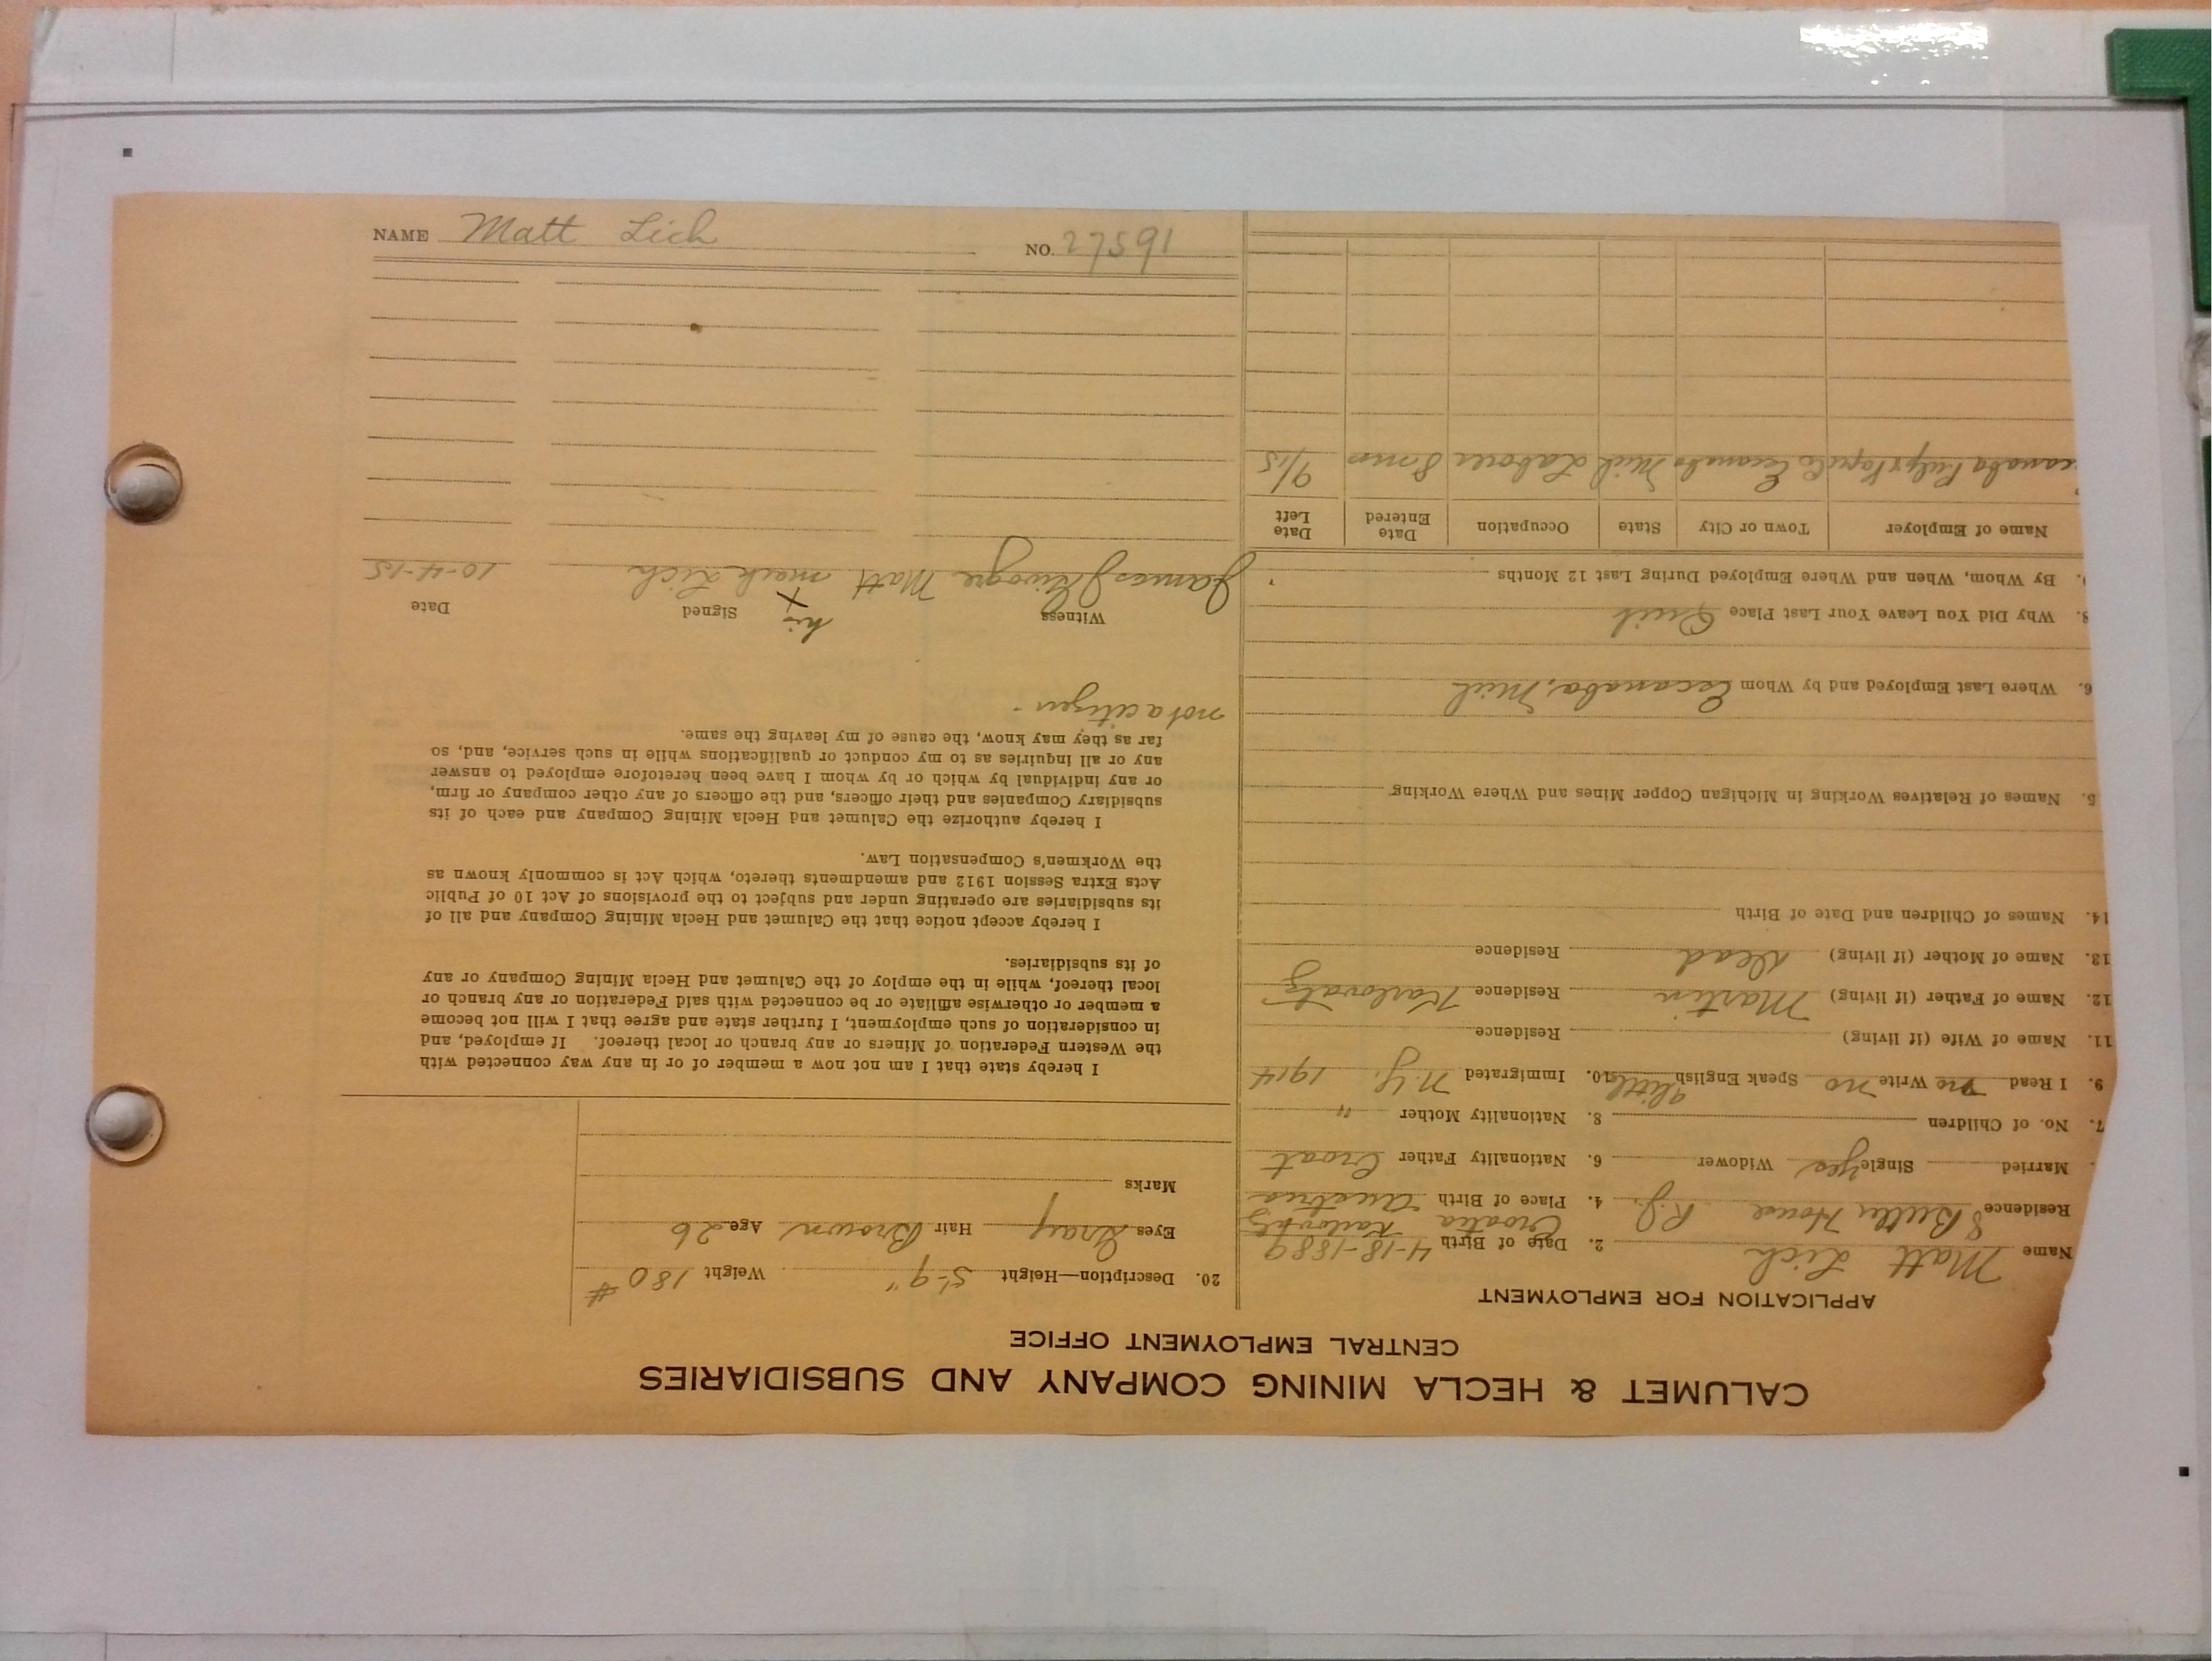 CALUMET & HECLA MINING COMPANY AND SUBSIDIARIES
CENTRAL EMPLOYMENT OFFICE
APPLICATION FOR EMPLOYMENT
Name Matt Lich 2. Date of Birth 4-18-1889
Residence 8 Butler House R.J. 4. Place of Birth Croatia Karlovatz Austria
Married Single yes Widower 6. Nationality Father Croat
7. No. of Children 8. Nationality Mother "
9. I Read no Write no Speak English little 10. Immigrated N.Y. 1914
11. Name of Wife (if living) Residence
12. Name of Father (if living) Martin Residence Karlovatz
13. Name of Mother (if living) Dead Residence
14. Names of Children and Date of Birth
5. Names of Relatives Working in Michigan Copper Mines and Where Working
6. Where Last Employed and by Whom Escanaba, Mich
8. Why Did You Leave Your Last Place Quit
9. By Whom, When and Where Employed During Last 12 Months
Name of Employer Town or City State Occupation Date Entered Date Left
canaba Pulp & Paper Co Escanaba Mich Laborer 8 mos 9/15
20. Description—Height 5'-9" Weight 180 #
Eyes Gray Hair Brown Age 26
Marks
I hereby state that I am not now a member of or in any way connected with
the Western Federation of Miners or any branch or local thereof. If employed, and
in consideration of such employment, I further state and agree that I will not become
a member or otherwise affiliate or be connected with said Federation or any branch or
local thereof, while in the employ of the Calumet and Hecla Mining Company or any
of its subsidiaries.
I hereby accept notice that the Calumet and Hecla Mining Company and all of
its subsidiaries are operating under and subject to the provisions of Act 10 of Public
Acts Extra Session 1912 and amendments thereto, which Act is commonly known as
the Workmen's Compensation Law.
I hereby authorize the Calumet and Hecla Mining Company and each of its
subsidiary Companies and their officers, and the officers of any other company or firm,
or any individual by which or by whom I have been heretofore employed to answer
any or all inquiries as to my conduct or qualifications while in such service, and, so
far as they may know, the cause of my leaving the same.
not a citizen.
Witness his Signed Date
X
James J Matt mark Lich 10-4-15
NAME Matt Lich NO. 27591